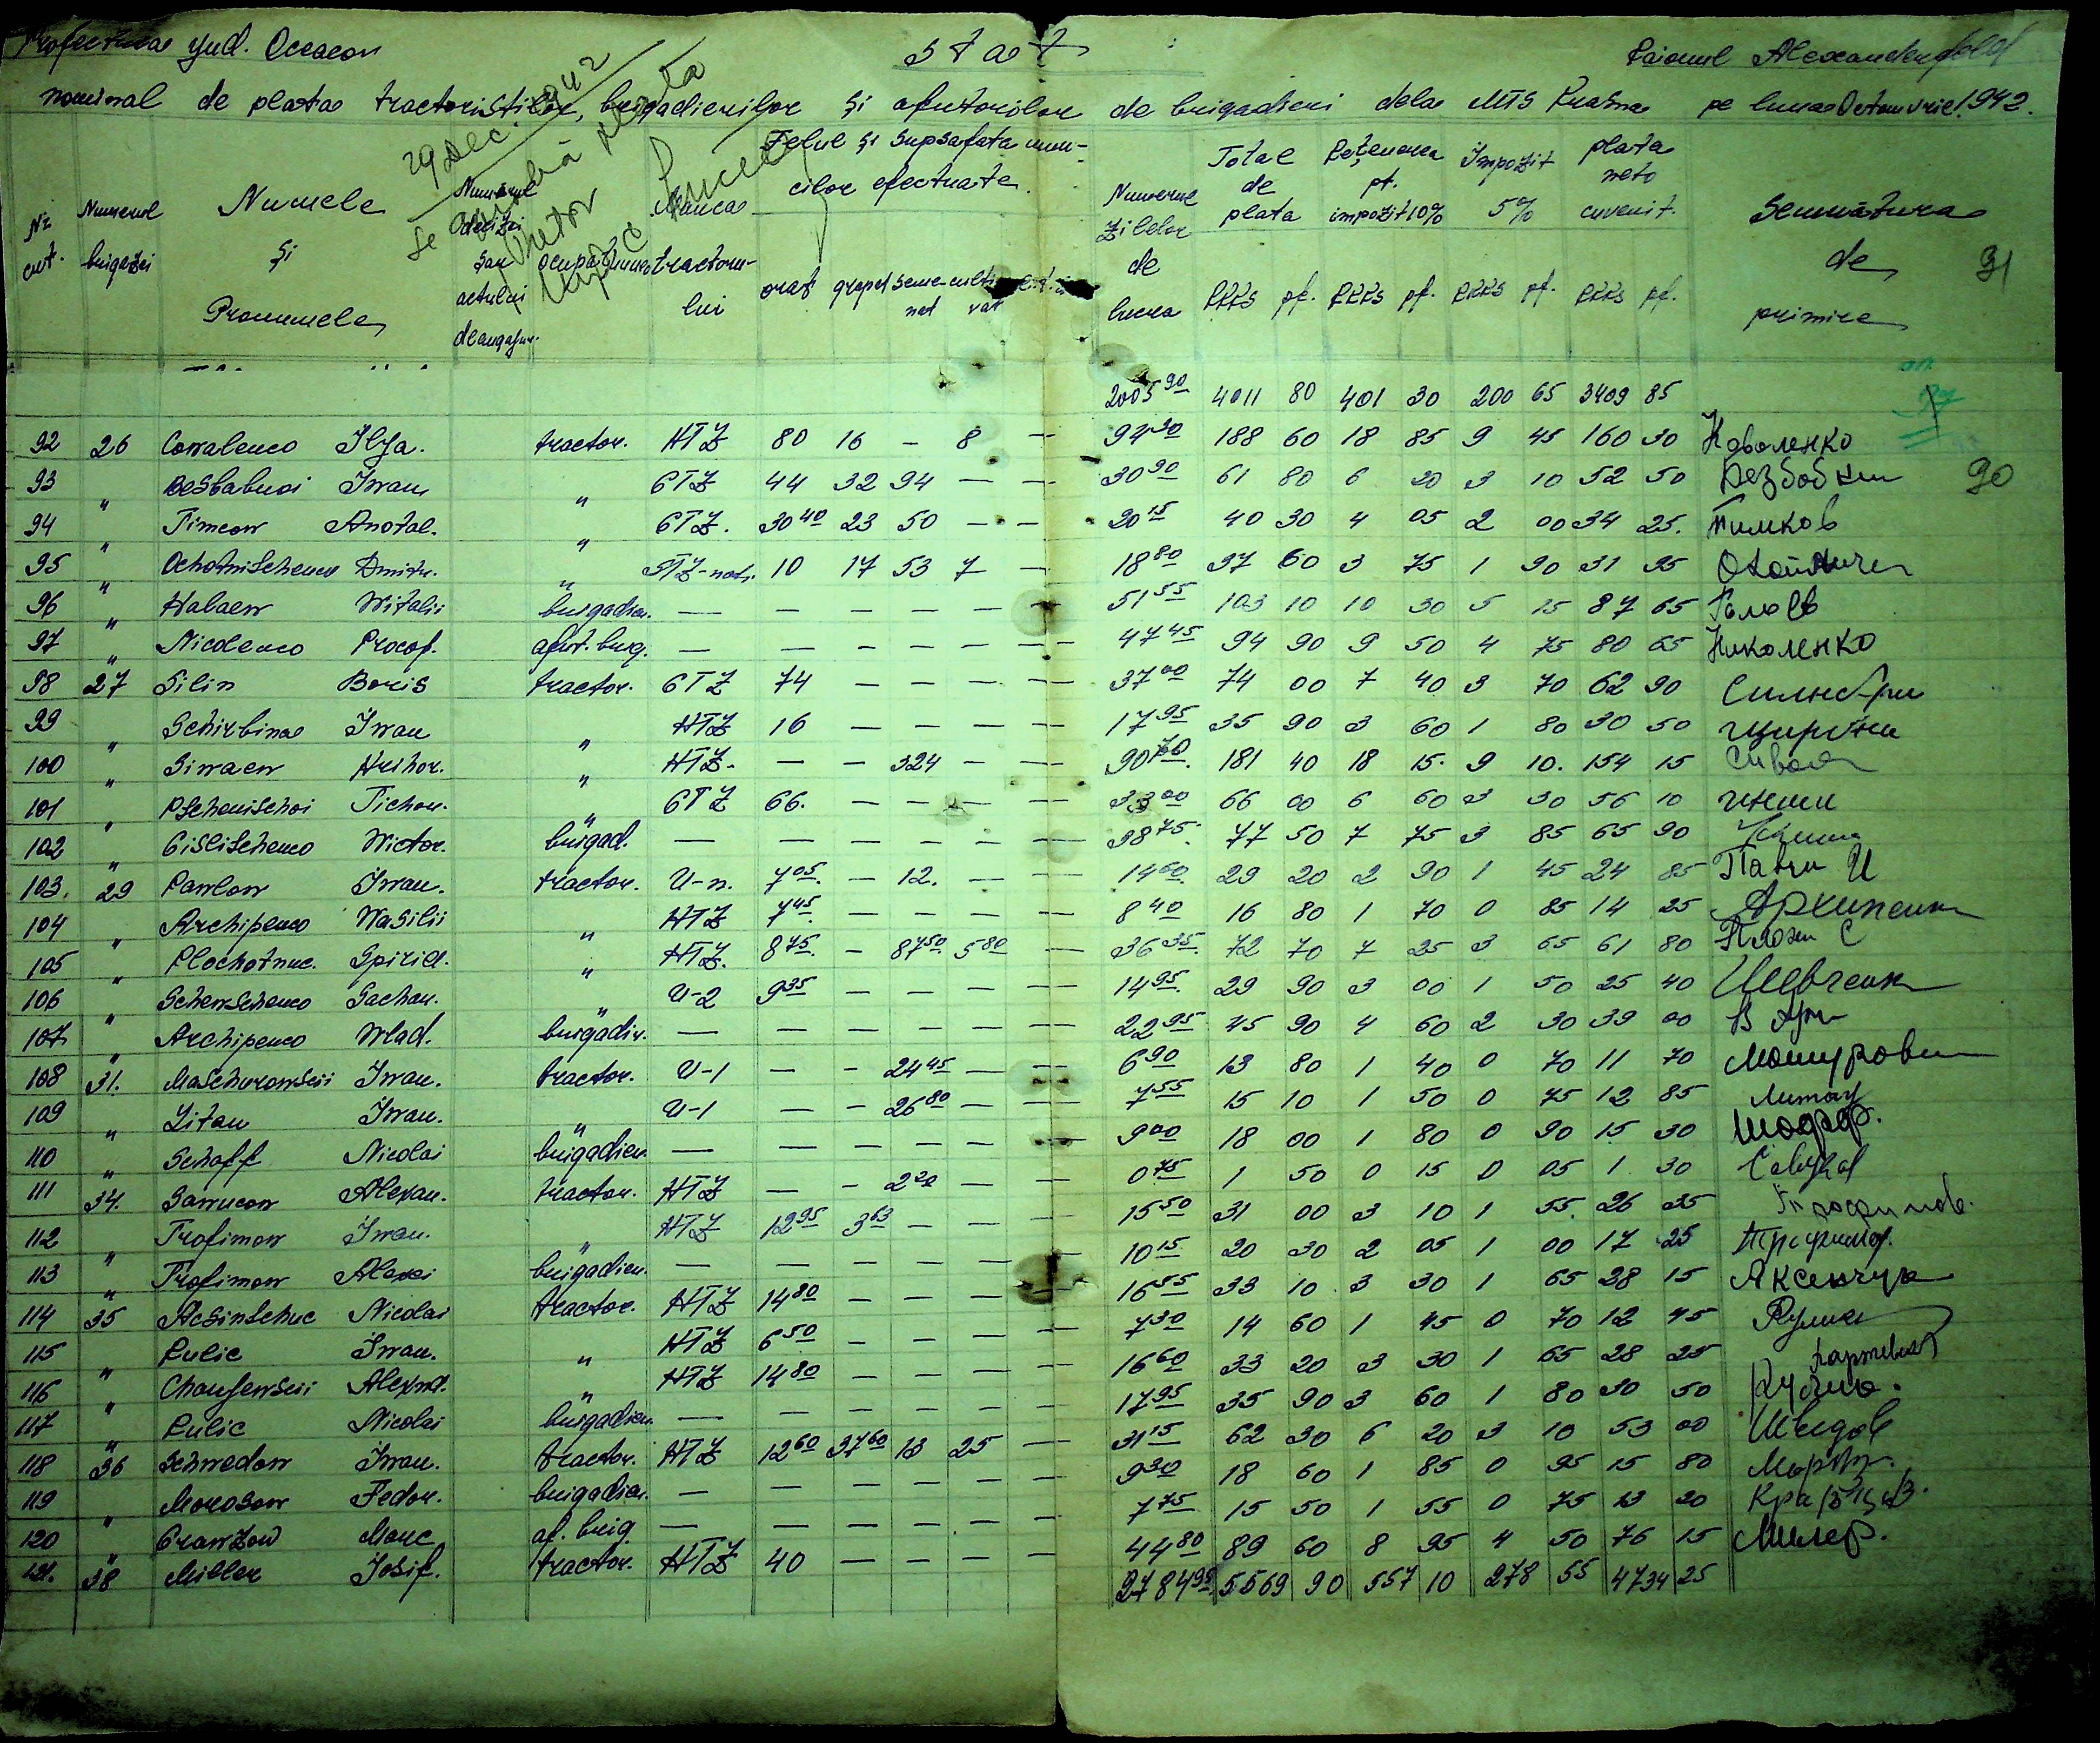 Prefectura jud. Oceacov stat Raionul Alexanderfeld
nominal de plata tractoriștilor, brigadierilor și ajutorilor de brigadieri dela MTS Krasna pe luna Octomvrie 1942.
29 Dec. 942
Pretor
Nr. crt. Numerul brigăzii Numele și Pronumele Numărul deciziei sau actului de angajar. ocupațiunea Marca tractorului Felul și supsafata muncilor efectuate. Numerul zilelor de lucru Total de plata Rețenerea pt. impozit 10% Impozit 5% plata neto cuvenit. Semnătura de primire 31
orat grapat semenat cultivat RKKS pf. RKKS pf. RKKS pf. RKKS pf.
2005 90 4011 80 401 30 200 65 3409 85
92 26 Covalenco Ilya. tractor. HTZ 80 16 — 8 — 94 30 188 60 18 85 9 45 160 30 Коваленко
93 " Besbabnoi Iwan " CTZ 44 32 94 — — 30 90 61 80 6 20 3 10 52 50 90
94 " Timcow Anatal. " CTZ. 30 40 23 50 — — 20 15 40 30 4 05 2 00 34 25. Тимков
95 " Ochotnischenco Dmitr. " STZ-nati. 10 17 53 7 — 18 80 37 60 3 75 1 90 31 95
96 " Halaew Witalii brigadier. — — — — — — 51 55 103 10 10 30 5 15 87 65
97 " Nicolenco Procof. ajut. brig. — — — — — — 47 45 94 90 9 50 4 75 80 65 Николенко
98 27 Silin Boris tractor. CTZ 74 — — — — 37 00 74 00 7 40 3 70 62 90
99 " Schirbina Iwan " HTZ 16 — — — — 17 95 35 90 3 60 1 80 30 50
100 " Siwaew Hrihor. " HTZ. — — 324 — — 90 70 181 40 18 15. 9 10. 154 15
101 " Pschenischoi Tichon. " CTZ 66. — — — — 33 00 66 00 6 60 3 30 56 10
102 " Cislischenco Wictor. brigad. — — — — — — 38 75. 77 50 7 75 3 85 65 90
103. 29 Pawlow Iwan. tractor. U-n. 7 05. — 12. — — 14 60. 29 20 2 90 1 45 24 85
104 " Archipenco Wasilii " HTZ 7 45. — — — — 8 40 16 80 1 70 0 85 14 25 Архипенк
105 " Plochotnuc. Spirid. " HTZ. 8 75. — 87 50. 5 80 — 36 35. 72 70 7 25 3 65 61 80
106 " Schewschenco Sachar. " U-2 9 35 — — — — 14 95. 29 90 3 00 1 50 25 40 Шевченк
107 " Archipenco Wlad. brigadir. — — — — — — 22 95 45 90 4 60 2 30 39 00
108 31. Maschurowscii Iwan. tractor. U-1 — — 24 45 — — 6 90 13 80 1 40 0 70 11 70
109 " Litau Iwan. " U-1 — — 26 80 — — 7 55 15 10 1 50 0 75 12 85
110 " Schaff Nicolai brigadier. — — — — — — 9 00 18 00 1 80 0 90 15 30 Шафф.
111 34. Sawucow Alexan. tractor. HTZ — — 2 20 — — 0 75 1 50 0 15 0 05 1 30
112 " Trofimow Iwan. " HTZ 12 95 3 63 — — — 15 50 31 00 3 10 1 55. 26 35
113 " Trofimow Alexei brigadier. — — — — — — 10 15 20 30 2 05 1 00 17 25
114 35 Acsintchuc Nicolai tractor. HTZ 14 80 — — — — 16 55 33 10 3 30 1 65 28 15 Аксенчук
115 " Rulic Iwan. " HTZ 6 50 — — — — 7 30 14 60 1 45 0 70 12 45
116 " Chanjewscii Alexnd. " HTZ 14 80 — — — — 16 60 33 20 3 30 1 65 28 25
117 " Rulic Nicolai brigadier. — — — — — — 17 95 35 90 3 60 1 80 30 50
118 36 Schwedow Iwan. tractor. HTZ 12 60 37 60 13 25 — 31 15 62 30 6 20 3 10 53 00 Шведов
119 " Morosow Fedor. brigadier. — — — — — — 9 30 18 60 1 85 0 95 15 80
120 " Crawzow Marc aj. brig. — — — — — — 7 75 15 50 1 55 0 75 13 20
121. 38 Miller Iosif. tractor. HTZ 40 — — — — 44 80 89 60 8 95 4 50 76 15 Милер.
2784 95. 5569 90 557 10 278 55 4734 25